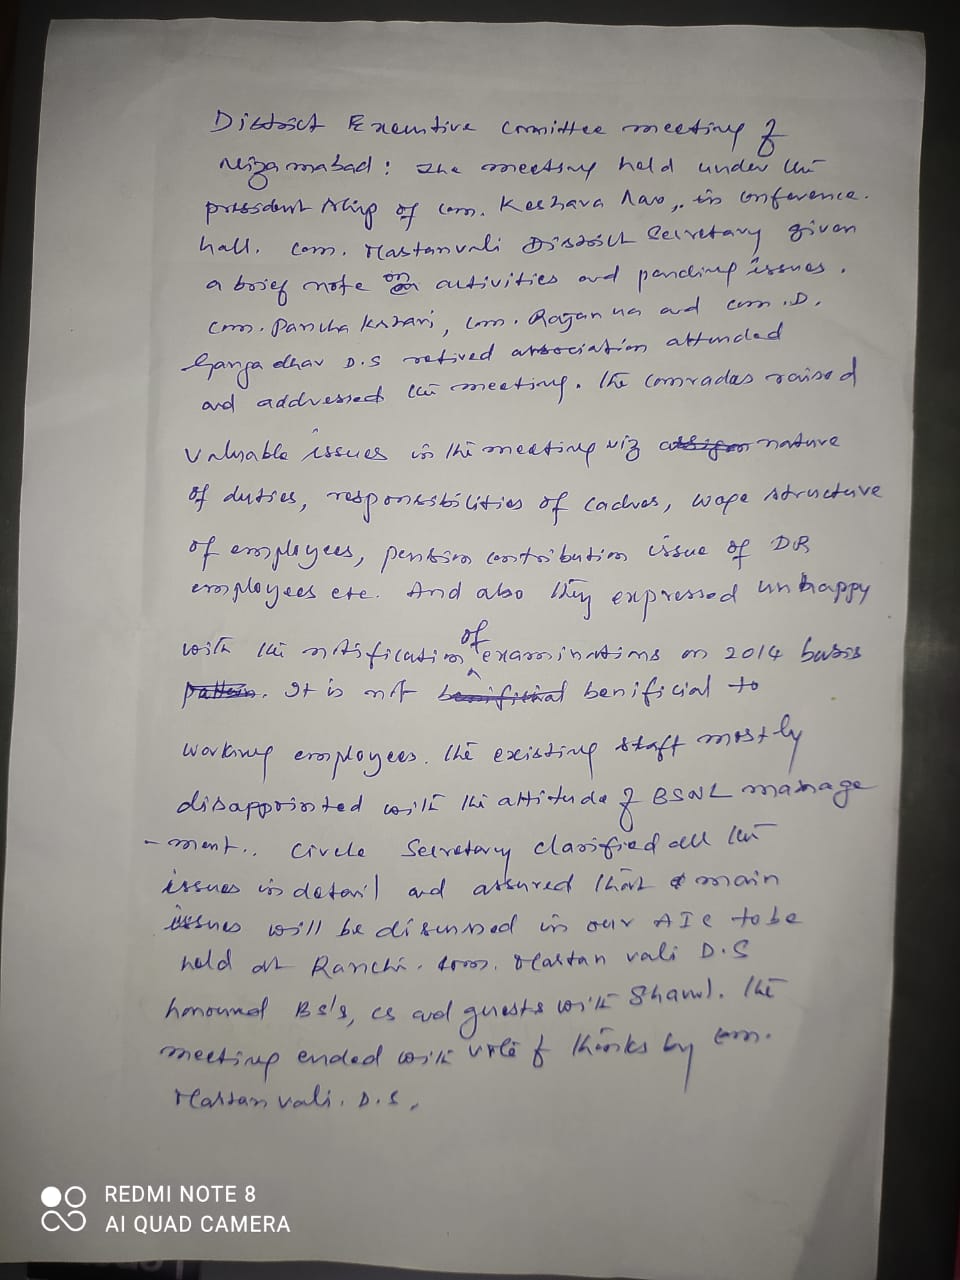 District Executive Committee meeting of
Nizamabad: The meeting held under the
president ship of com. Keshava Rao, in conference.
hall. com. Mastanvali District Secretary given
a brief note on activities and pending issues.
com. Pancha Kshari, com. Rajanna and com. D.
Gangadhar D.S retired association attended
and addressed the meeting. The comrades raised
valuable issues in the meeting viz nature
of duties, responsibilities of cadres, wage structure
of employees, pension contribution issue of DR
employees etc. And also they expressed unhappy
with the notification of examinations on 2014 basis
. It is not benificial to
working employees. The existing staff mostly
disappointed with the attitude of BSNL manage
- ment.. Circle Secretary clarified all the
issues in detail and assured that main
issues will be discussed in our AIC to be
held at Ranchi. com. Mastan vali D.S
honoured BS's, CS and guests with Shawl. The
meeting ended with vote of thanks by com.
Mastan vali. D.S.
REDMI NOTE 8
AI QUAD CAMERA